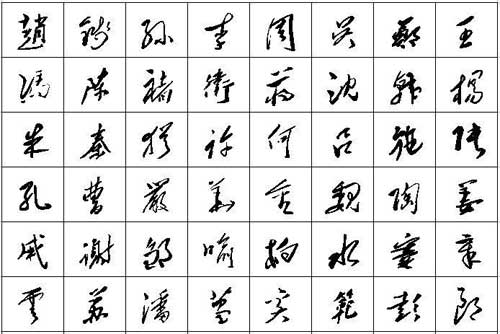 趙 錢 孫 李 周 吳 鄭 王
馮 陳 褚 衛 蔣 沈 韓 楊
朱 秦 許 何 呂 施 張
孔 曹 嚴 華 金 魏 陶 姜
戚 謝 鄒 喻 柏 水 竇 章
雲 蘇 潘 葛 奚 範 彭 郎